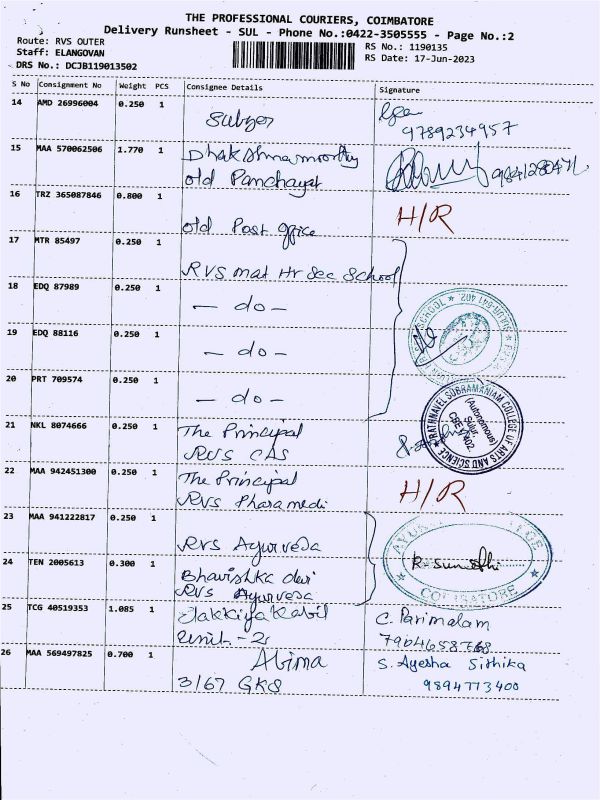 THE PROFESSIONAL COURIERS, COIMBATORE
Delivery Runsheet - SUL - Phone No.:0422-3505555 - Page No.:2
Route: RVS OUTER
RS No.: 1190135
Staff: ELANGOVAN
RS Date: 17-Jun-2023
DRS No.: DCJB119013502
S No Consignment No Weight PCS Consignee Details Signature
14 AMD 26996004 0.250 1
9789234957
15 MAA 570062506 1.770 1 Dhakshnamoorthy
old Panchayat
16 TRZ 365087846 0.800 1 H/R
old Post office
17 MTR 85497 0.250 1
RVS mat Hr Sec School
18 EDQ 87989 0.250 1
- do -
19 EDQ 88116 0.250 1
- do -
20 PRT 709574 0.250 1
- do -
RATHNAVEL SUBRAMANIAM COLLEGE OF ARTS AND SCIENCE
(Autonomous)
Sulur
21 NKL 8074666 0.250 1 The Principal
RVS CAS
22 MAA 942451300 0.250 1 The Principal H/R
RVS
23 MAA 941222817 0.250 1
RVS Ayurveda
24 TEN 2005613 0.300 1
RVS Ayurveda
COIMBATORE
25 TCG 40519353 1.085 1 C. Parimalam
Unit - 2
26 MAA 569497825 0.700 1 Abima S. Ayesha Sithika
3/67 GKS 9894773400